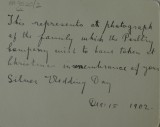 This represents a photograph
of the family which the Postley
Company wish to have taken at
Christmas in remembrance of your
Silver Wedding Day
Dec. 15 1902.